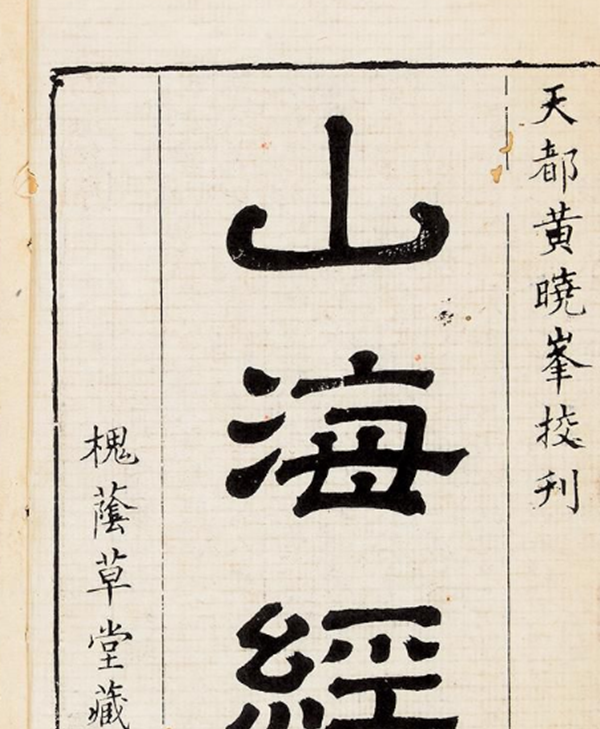 天都黄曉峯挍刋
山海經
槐蔭草堂藏